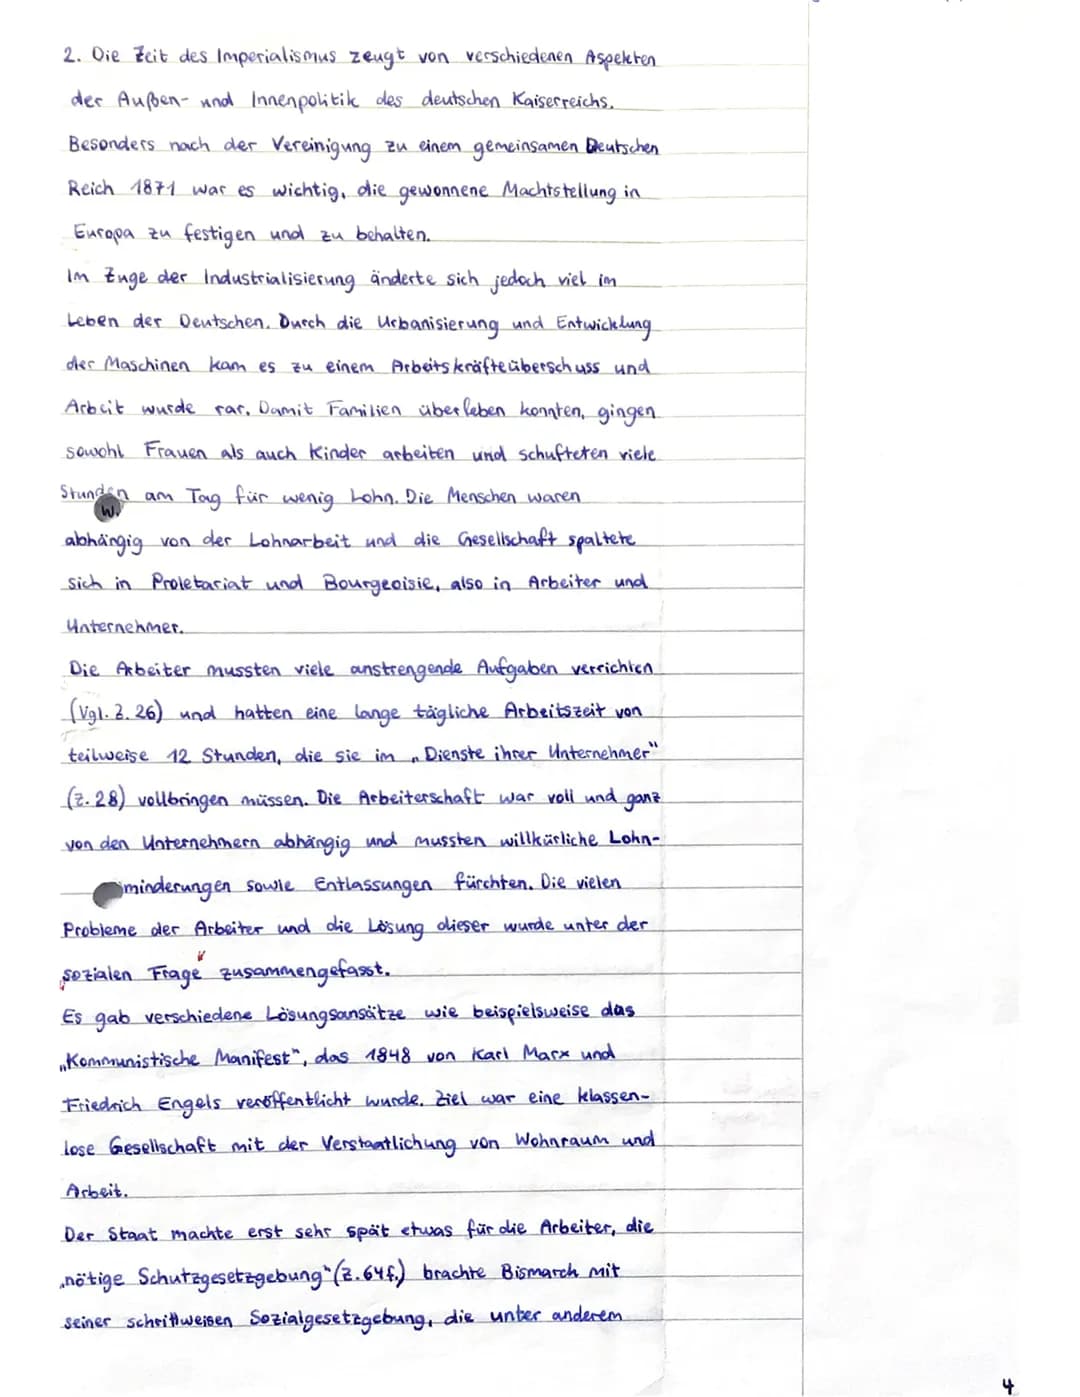 2. Die Zeit des Imperialismus zeugt von verschiedenen Aspekten
der Außen- und Innenpolitik des deutschen Kaiserreichs.
Besonders nach der Vereinigung zu einem gemeinsamen Deutschen
Reich 1871 war es wichtig, die gewonnene Machtstellung in
Europa zu festigen und zu behalten.
Im Zuge der Industrialisierung änderte sich jedoch viel im
Leben der Deutschen. Durch die Urbanisierung und Entwicklung
der Maschinen kam es zu einem Arbeitskräfteüberschuss und
Arbeit wurde rar. Damit Familien überleben konnten, gingen
sowohl Frauen als auch Kinder arbeiten und schufteten viele
Stunden am Tag für wenig Lohn. Die Menschen waren
W.
abhängig von der Lohnarbeit und die Gesellschaft spaltete
sich in Proletariat und Bourgeoisie, also in Arbeiter und
Unternehmer.
Die Arbeiter mussten viele anstrengende Aufgaben verrichten
(Vgl. Z. 26) und hatten eine lange tägliche Arbeitszeit von
teilweise 12 Stunden, die sie im „Dienste ihrer Unternehmer"
(Z. 28) vollbringen müssen. Die Arbeiterschaft war voll und ganz
von den Unternehmern abhängig und mussten willkürliche Lohn-
minderungen sowie Entlassungen fürchten. Die vielen
Probleme der Arbeiter und die Lösung dieser wurde unter der
sozialen Frage zusammengefasst.
Es gab verschiedene Lösungsansätze wie beispielsweise das
„Kommunistische Manifest", das 1848 von Karl Marx und
Friedrich Engels veröffentlicht wurde. Ziel war eine klassen-
lose Gesellschaft mit der Verstaatlichung von Wohnraum und
Arbeit.
Der Staat machte erst sehr spät etwas für die Arbeiter, die
„nötige Schutzgesetzgebung" (Z. 64f.) brachte Bismarch mit
seiner schrittweisen Sozialgesetzgebung, die unter anderem
4